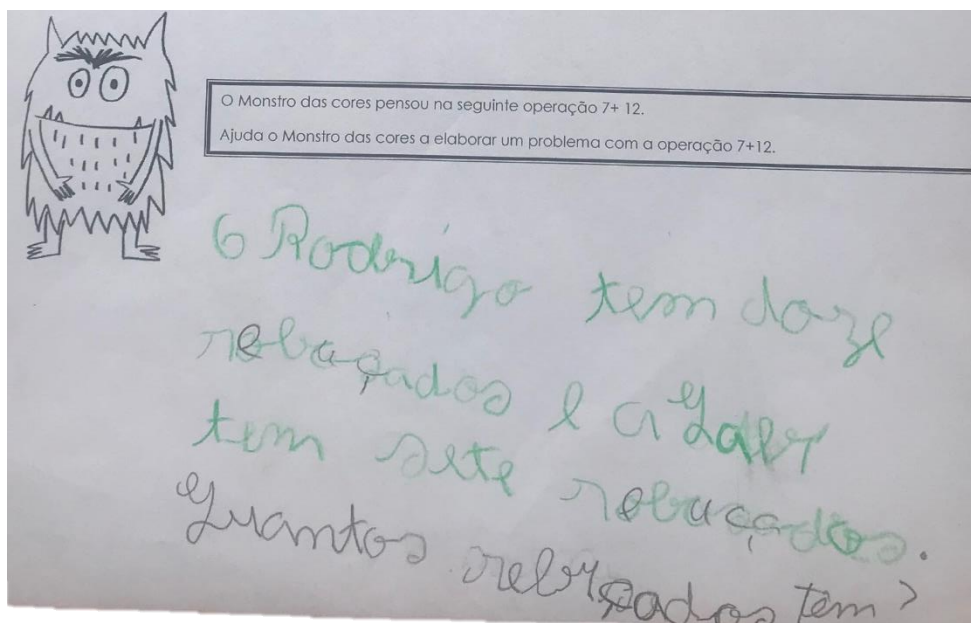 O Monstro das cores pensou na seguinte operação 7+ 12.
Ajuda o Monstro das cores a elaborar um problema com a operação 7+12.
O Rodrigo tem doze
rebuçados e a
tem sete rebuçados.
Quantos rebuçados têm?